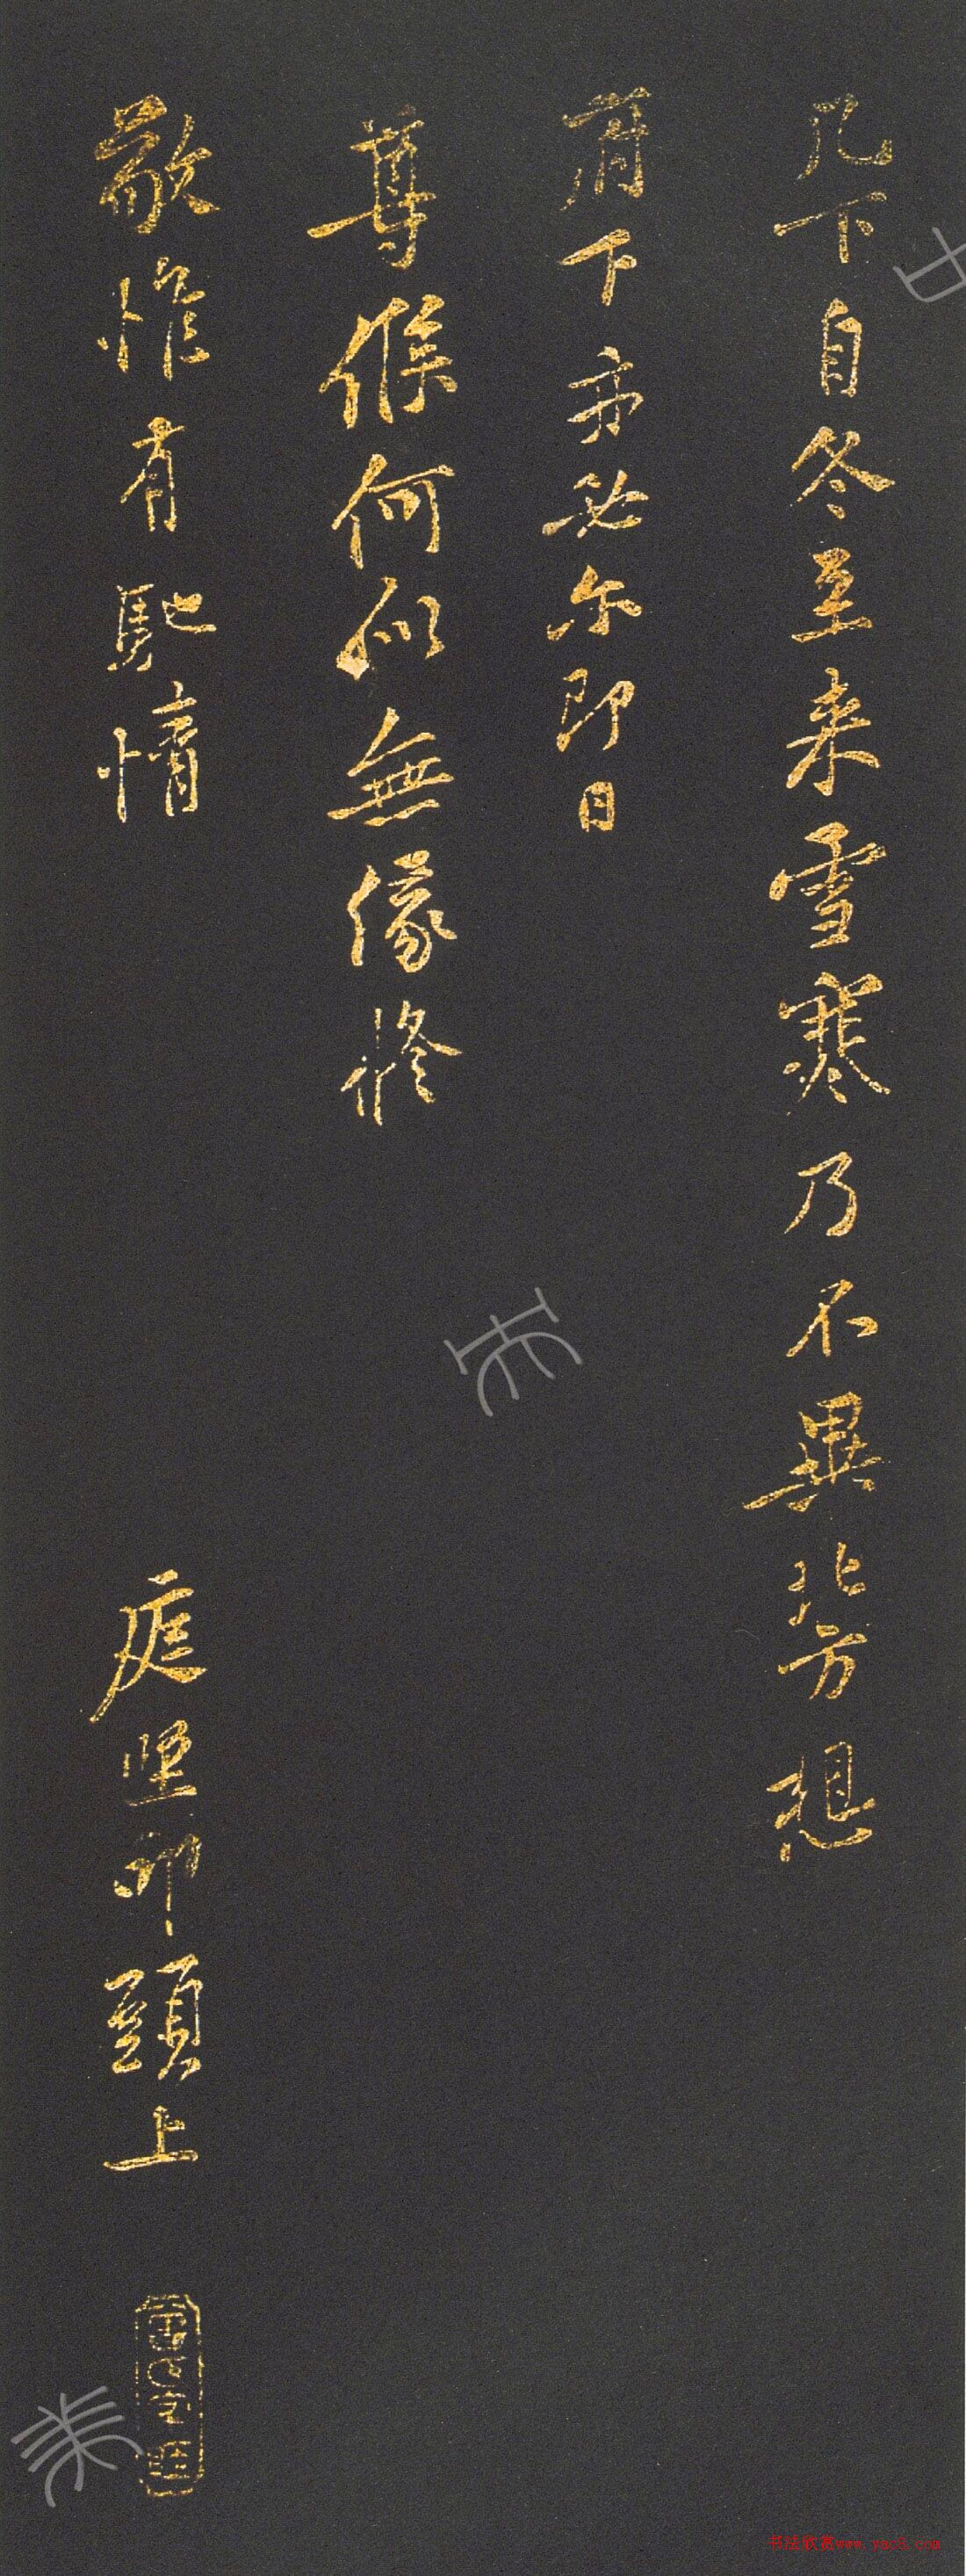 几下自冬至来雪寒乃不異北方想
下亦必尔即日
尊候何似無緣修
敬惟有馳情
庭堅叩頭上
书法欣赏www.yac8.com